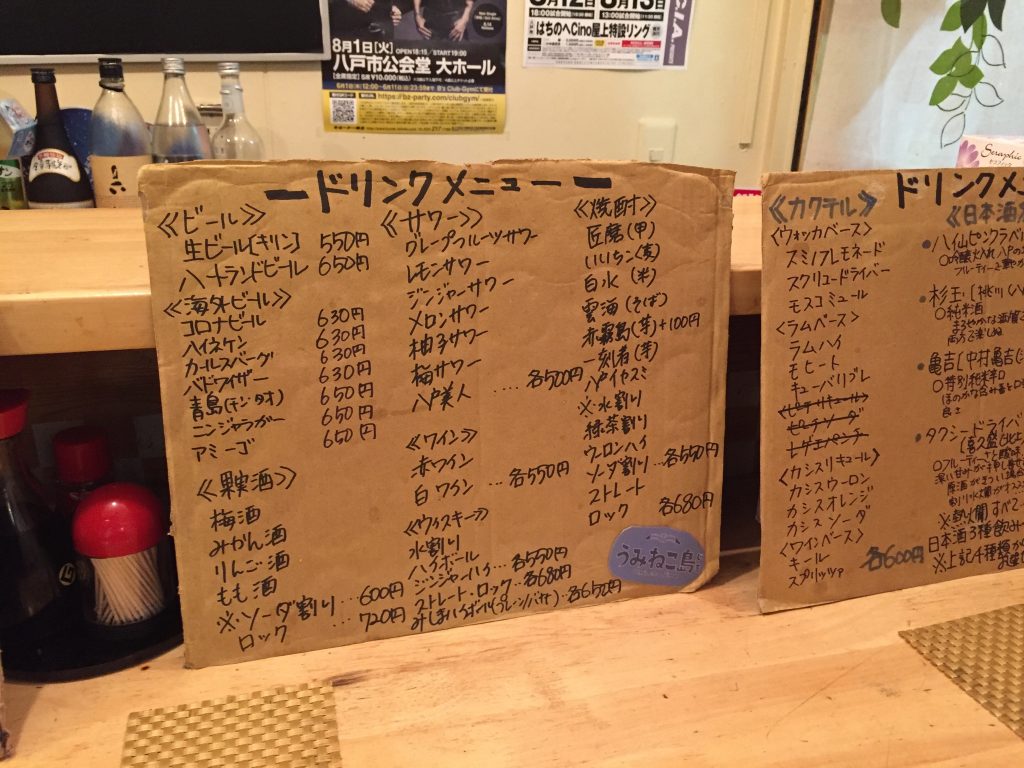 8月1日(火) OPEN18:15/START19:00
八戸市公会堂 大ホール
https://bz-party.com/clubgym/
はちのへCino屋上特設リング
Seraphic
ードリンクメニューー
《ビール》
生ビール[キリン] 550円
ハートランドビール 650円
《海外ビール》
コロナビール 630円
ハイネケン 630円
カールスバーグ 630円
バドワイザー 630円
青島(チンタオ) 650円
ニンジャラガー 650円
アミーゴ 650円
《果実酒》
梅酒
みかん酒
りんご酒
もも酒
※ソーダ割り…600円
ロック …720円
《サワー》
グレープフルーツサワー
レモンサワー
ジンジャーサワー
メロンサワー
柚子サワー
梅サワー
八戸美人 …各500円
《ワイン》
赤ワイン
白ワイン …各550円
《ウィスキー》
水割り
ハイボール
ジンジャーハイ …各550円
ストレート・ロック…各680円
《焼酎》
匠磨(甲)
いいちこ(麦)
白水(米)
雲海(そば)
赤霧島(芋)+100円
一刻者(芋)
八戸イヤスミ
※水割り
緑茶割り
ウーロンハイ
ソーダ割り…各550円
ストレート
ロック 各680円
うみねこ島
ドリンクメ
《カクテル》
<ウォッカベース>
スミノフレモネード
スクリュードライバー
モスコミュール
<ラムベース>
ラムハイ
モヒート
キューバリブレ
<カシスリキュール>
カシスウーロン
カシスオレンジ
カシスソーダ
<ワインベース>
キール
スプリッツァ 各600円
《日本酒
○純米酒
●亀吉[中村亀吉
○特別純米辛口
●タクシードライバ
※熱火爛すべて
日本酒3種飲み
※上記4種類か